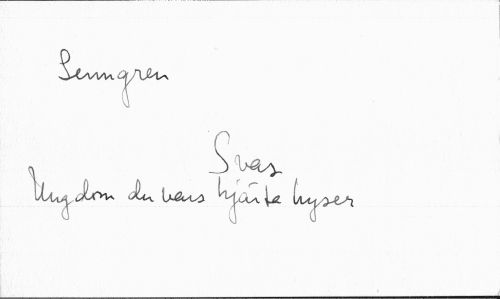 Lenngren
Svar
Ungdom du vars hjärta hyser